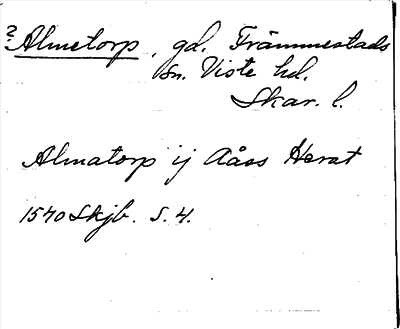 ? Almetorp, gd. Främmestads
sn. Viste hd.
Skar. l.
Almatorp ij Aåss Herat
1540 Skjb. S. 4.